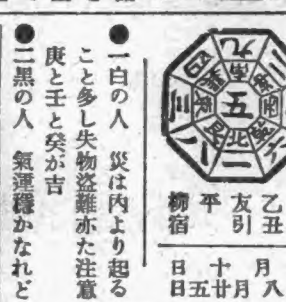 九
四 南
三 五
八 艮 北 乾 六
一
乙丑
友引
平
柳宿
月十日
八月廿五日
●一白の人 災は内より起る
こと多し失物盗難亦た注意
庚と壬と癸が吉
●二黒の人 氣運穩かなれど